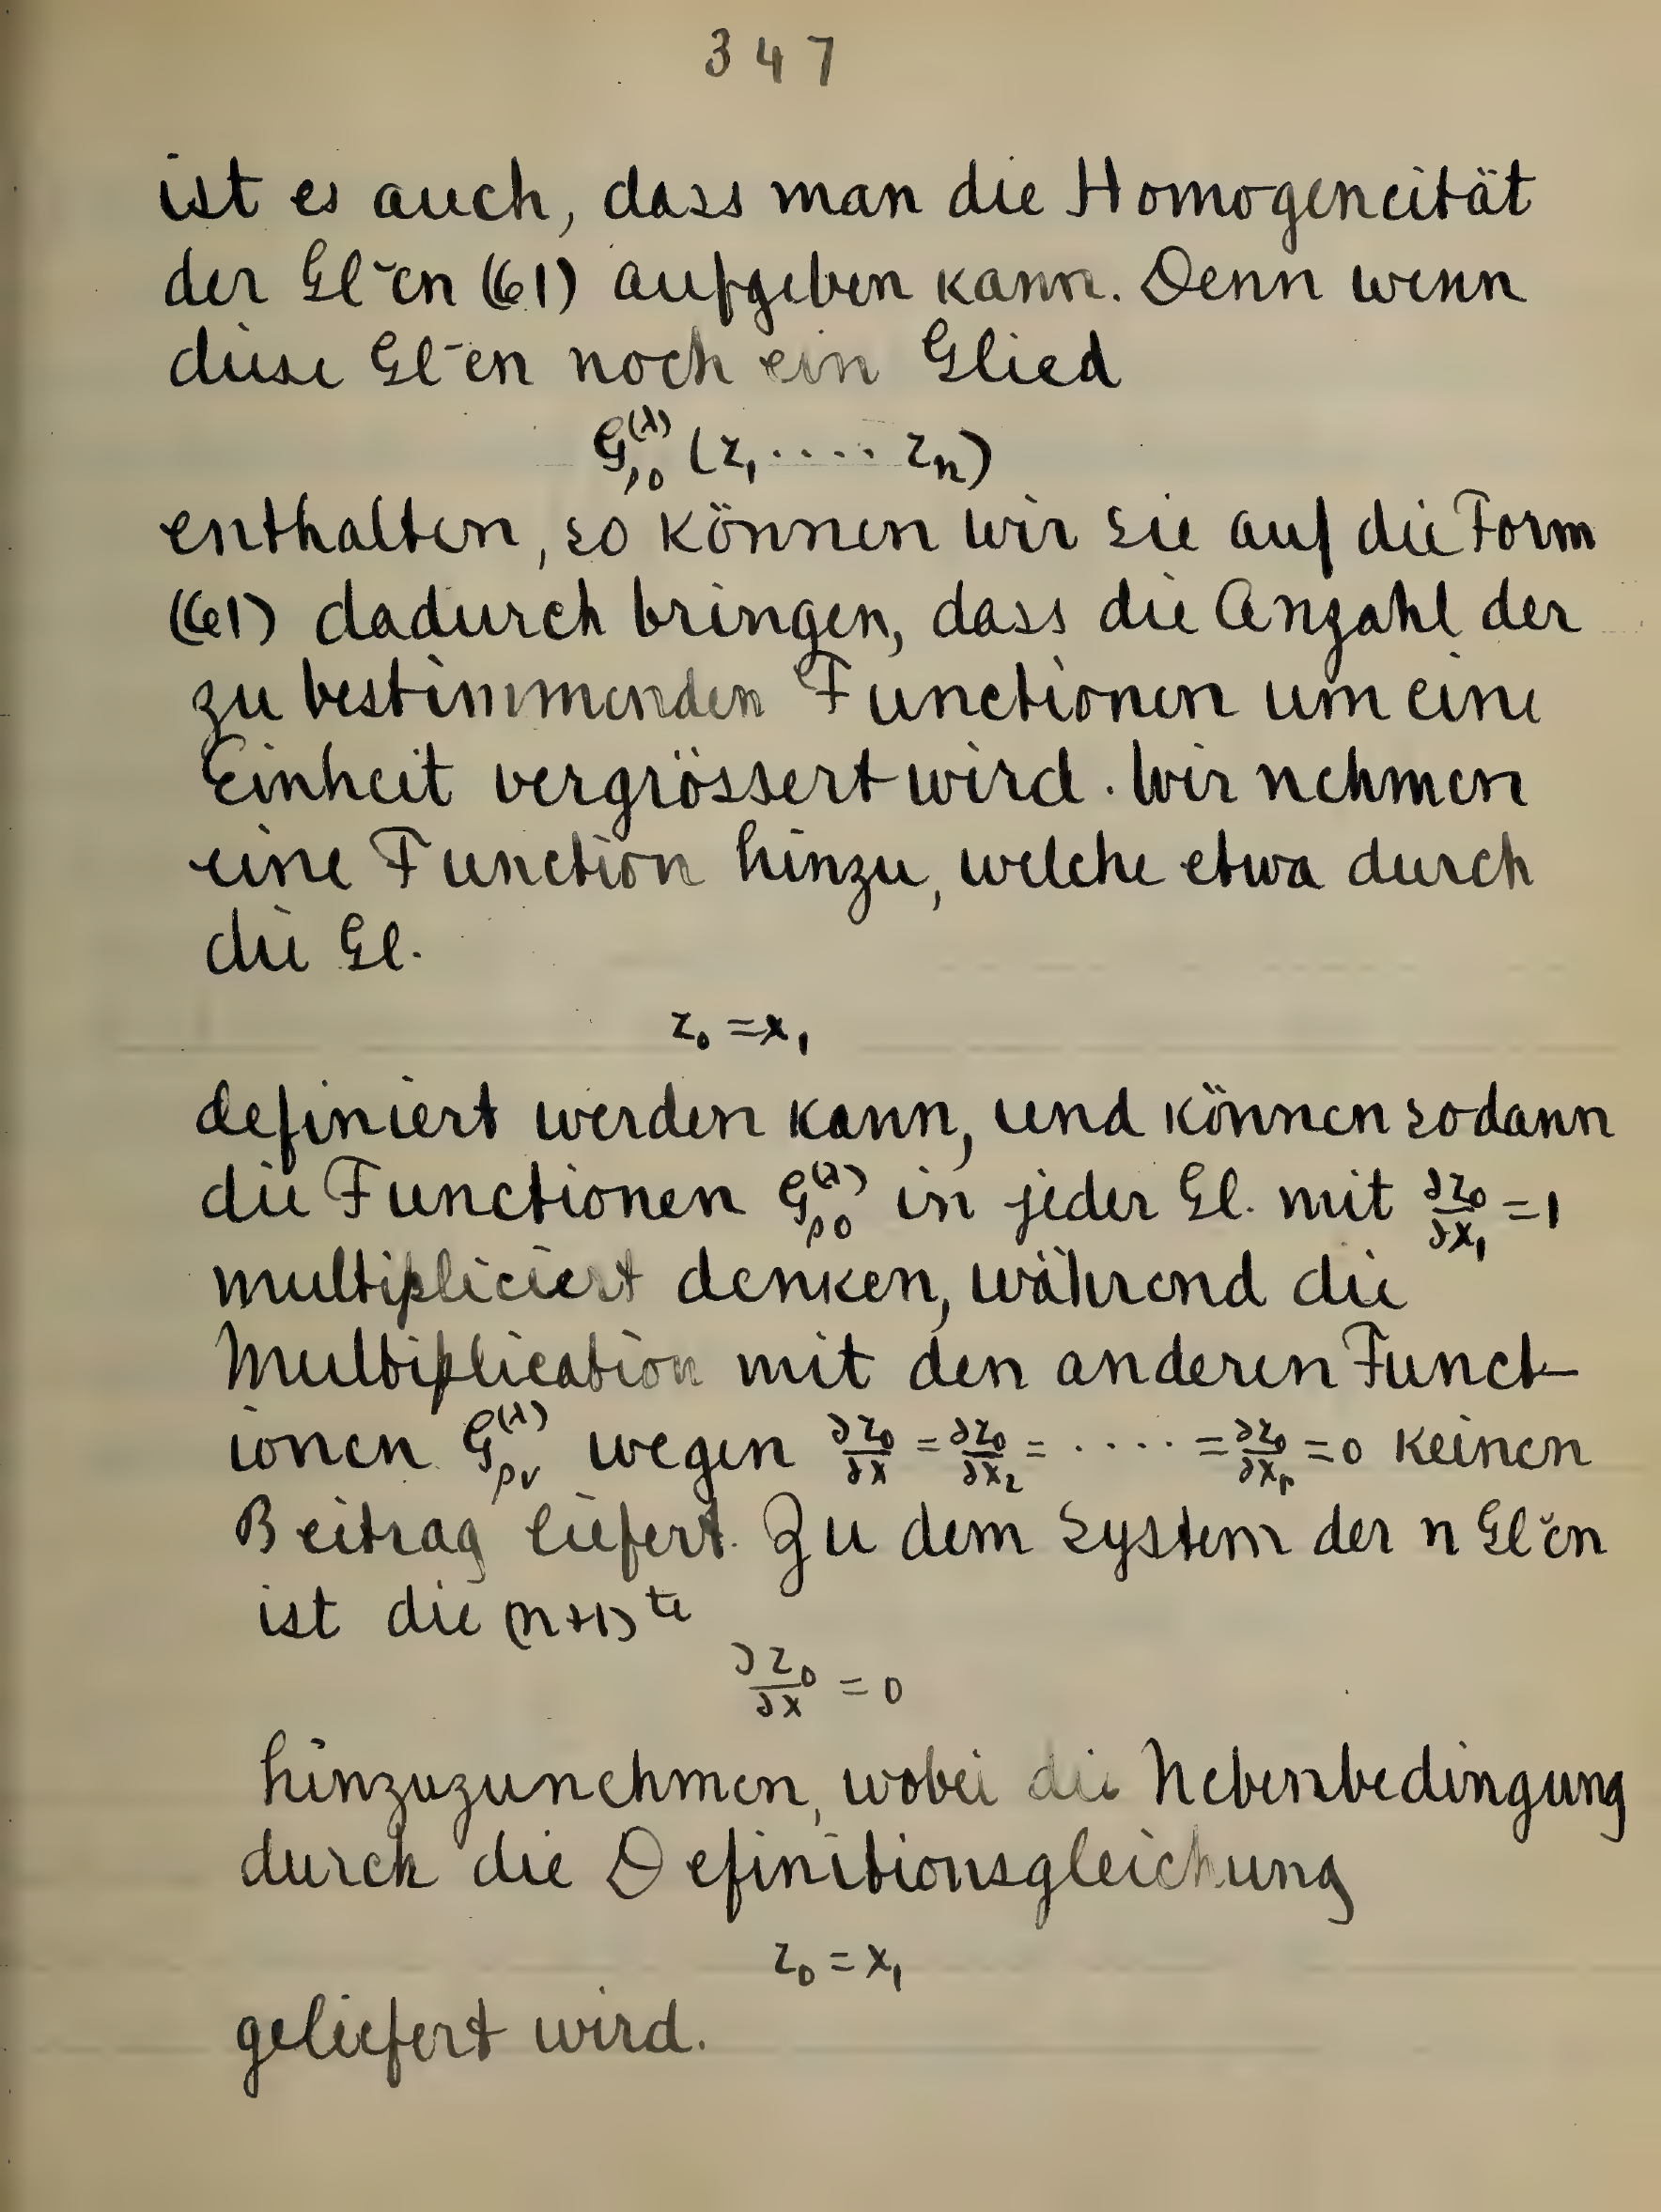 347
ist es auch, dass man die Homogeneität
der Gl̆en (61) aufgeben kann. Denn wenn
diese Gl̄en noch ein Glied
G_{ρ0}^{(λ)} (z₁ ..... zₙ)
enthalten, so können wir sie auf die Form
(61) dadurch bringen, dass die Anzahl der
zu bestimmenden Functionen um eine
Einheit vergrössert wird. Wir nehmen
eine Function hinzu, welche etwa durch
die Gl.
z₀ = x₁
definiert werden kann, und können sodann
die Functionen G_{ρ0}^{(λ)} in jeder Gl. mit ∂z₀/∂x₁ = 1
multipliciert denken, während die
Multiplication mit den anderen Funct-
ionen G_{ρν}^{(λ)} wegen ∂z₀/∂x = ∂z₀/∂x₂ = ..... = ∂z₀/∂xᵣ = 0 keinen
Beitrag liefert. Zu dem System der n Gl̆en
ist die (n+1)te
∂z₀/∂x = 0
hinzuzunehmen, wobei die Nebenbedingung
durch die Definitionsgleichung
z₀ = x₁
geliefert wird.